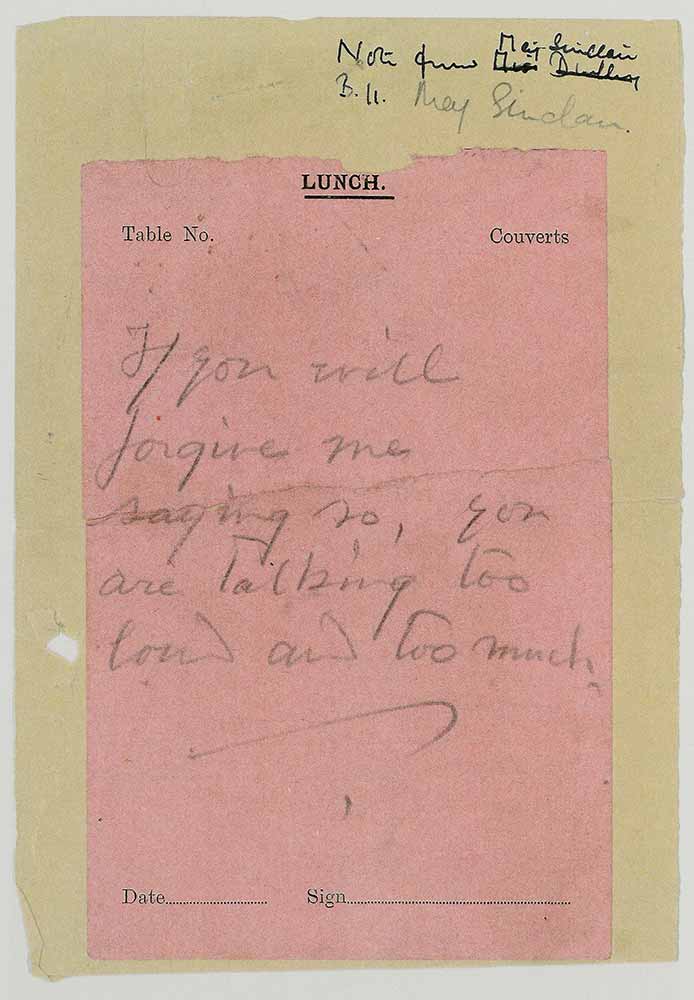 May Sinclair
Note from
B.H. May Sinclair.
LUNCH.
Table No. Couverts
If you will
forgive me
saying so, you
are talking too
loud and too much.
Date.................... Sign............................................